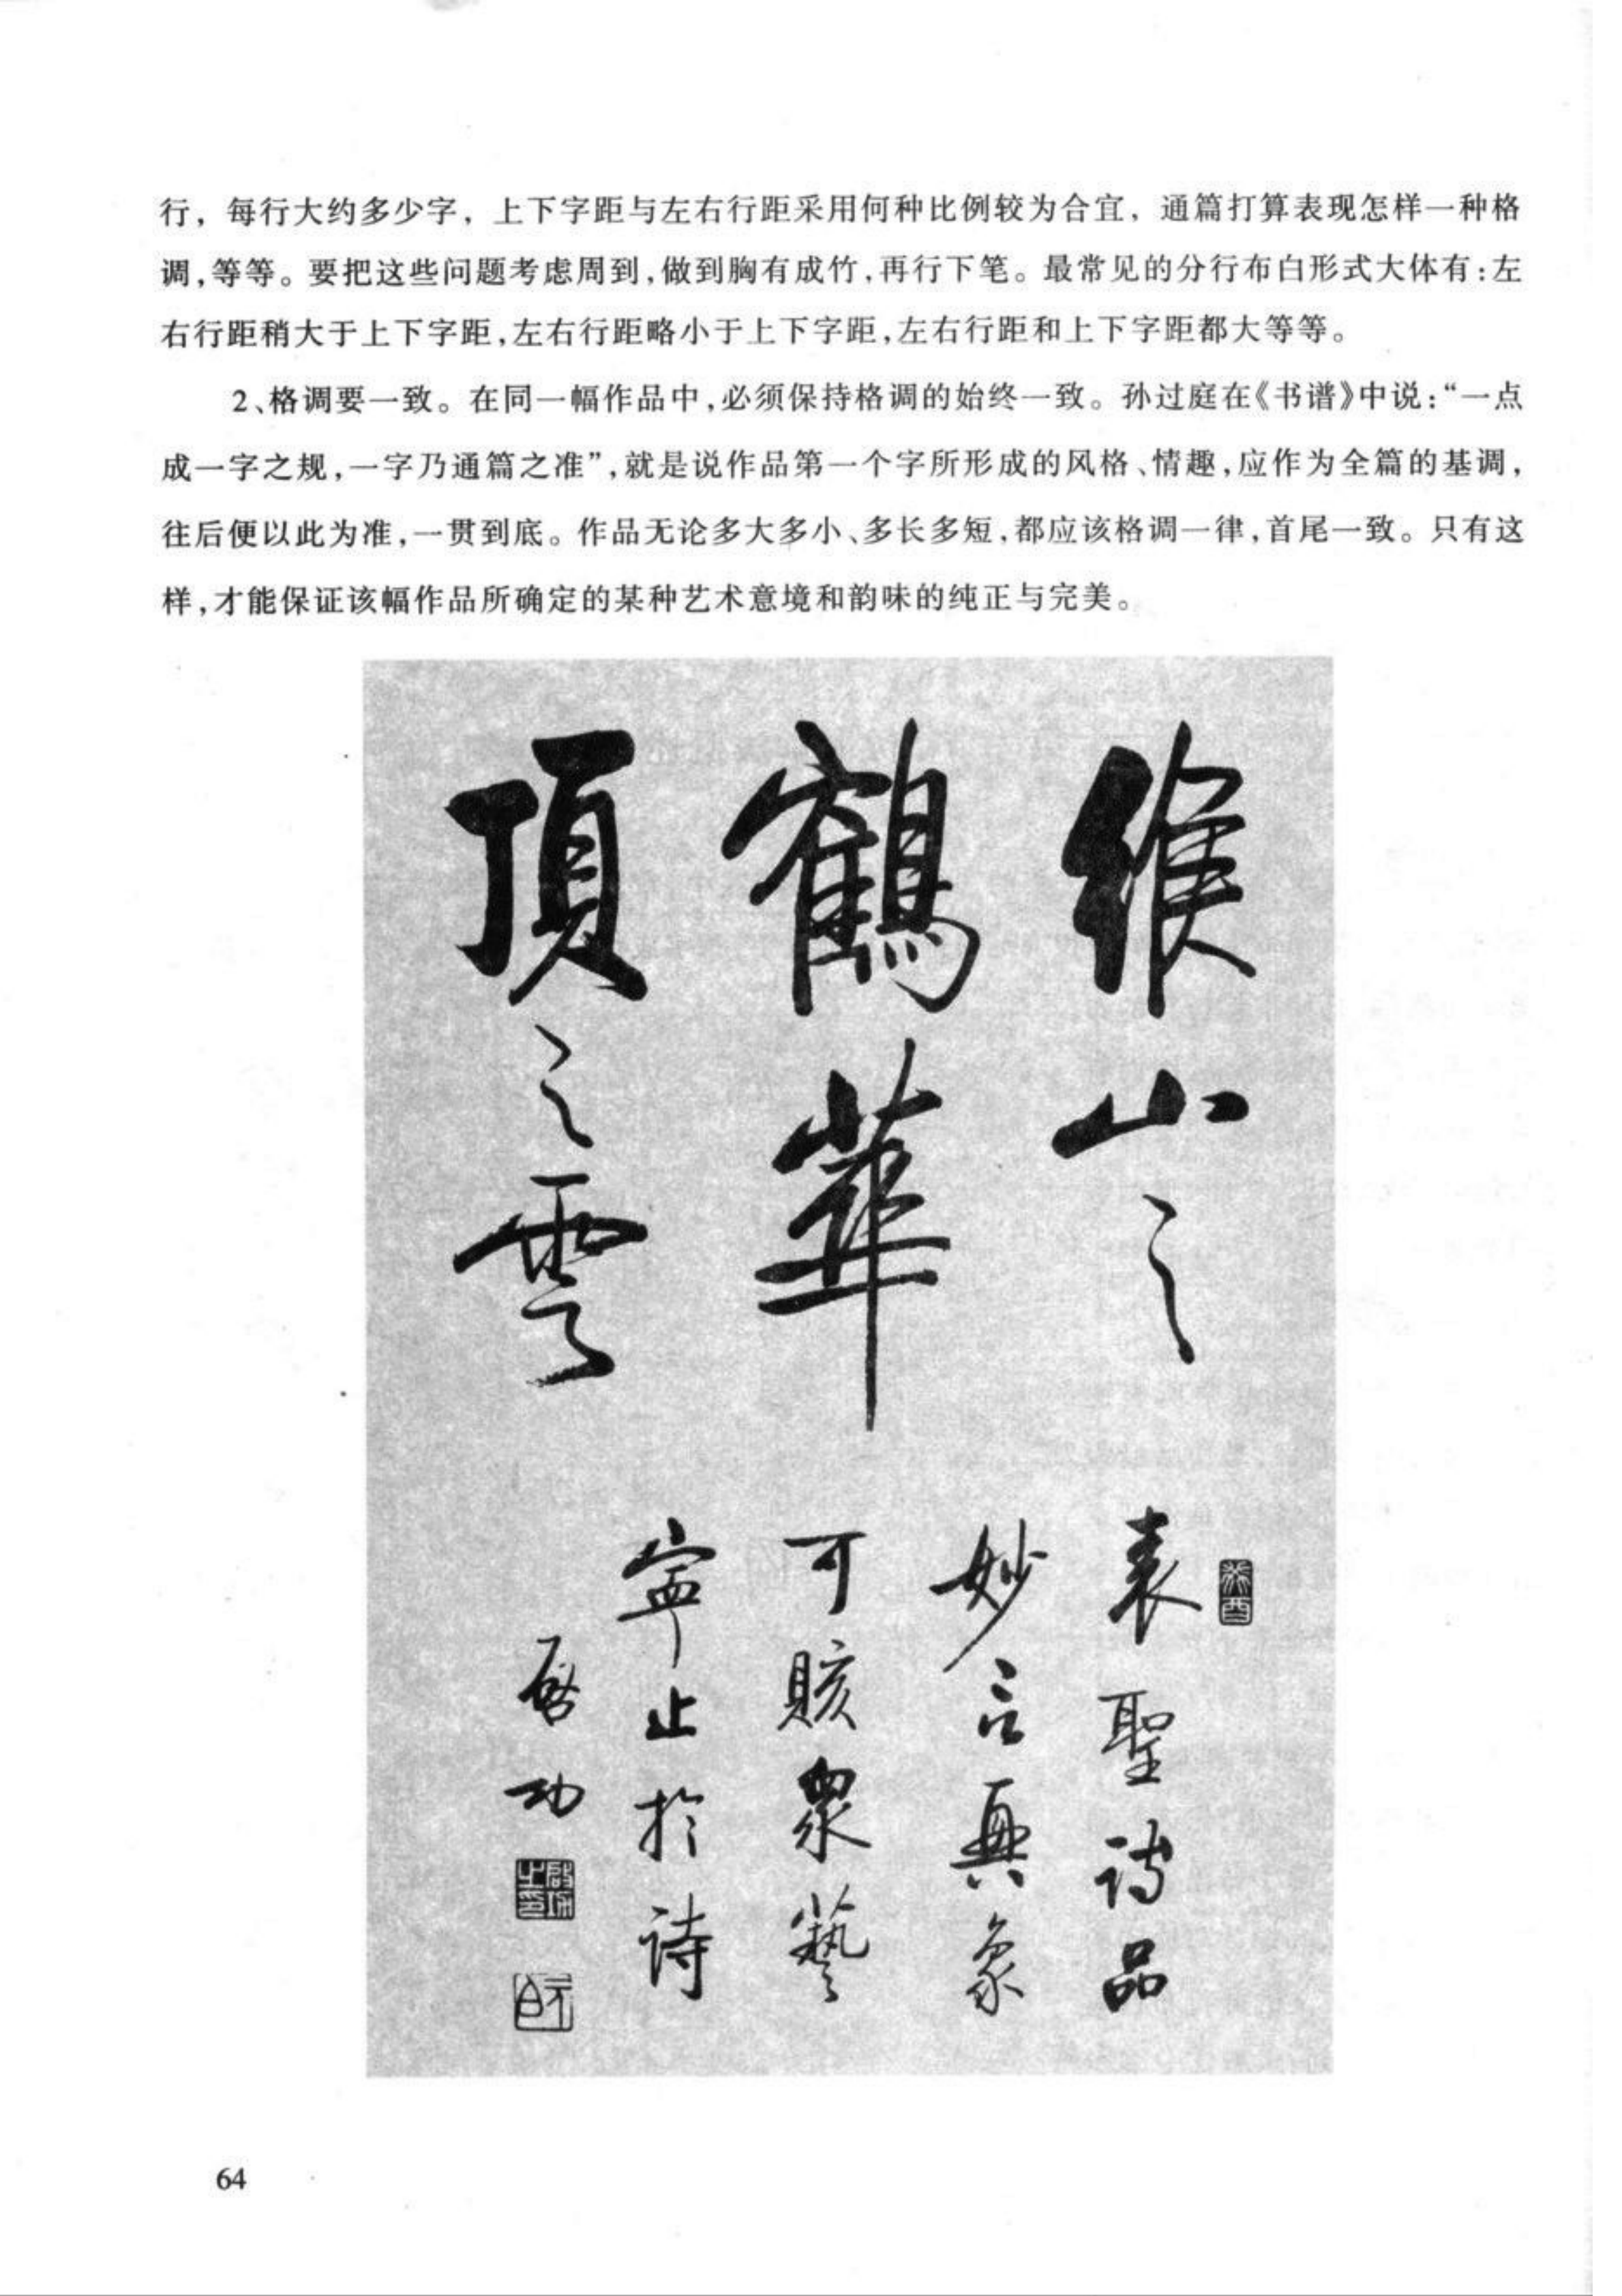 行，每行大约多少字，上下字距与左右行距采用何种比例较为合宜，通篇打算表现怎样一种格
调，等等。要把这些问题考虑周到，做到胸有成竹，再行下笔。最常见的分行布白形式大体有：左
右行距稍大于上下字距，左右行距略小于上下字距，左右行距和上下字距都大等等。
2、格调要一致。在同一幅作品中，必须保持格调的始终一致。孙过庭在《书谱》中说：“一点
成一字之规，一字乃通篇之准”，就是说作品第一个字所形成的风格、情趣，应作为全篇的基调，
往后便以此为准，一贯到底。作品无论多大多小、多长多短，都应该格调一律，首尾一致。只有这
样，才能保证该幅作品所确定的某种艺术意境和韵味的纯正与完美。
緱山之
鶴華
頂之雲
表聖詩品
妙言興象
可賅衆藝
寧止於詩
啓功
癸酉
啟功之印
元白
64